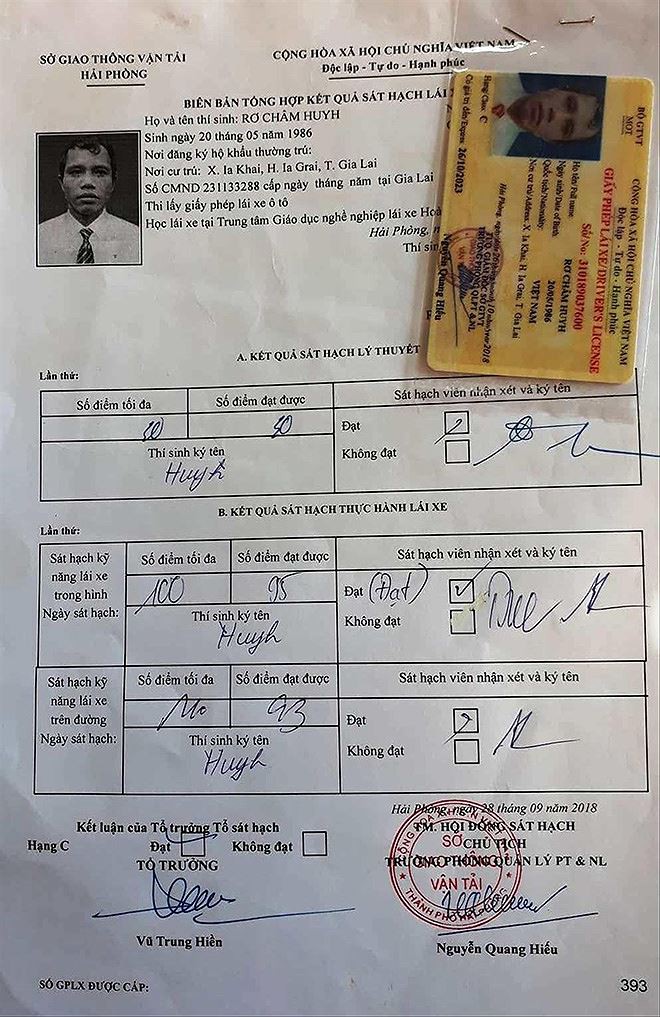 SỞ GIAO THÔNG VẬN TẢI
HẢI PHÒNG
CỘNG HÒA XÃ HỘI CHỦ NGHĨA VIỆT NAM
Độc lập - Tự do - Hạnh phúc
BIÊN BẢN TỔNG HỢP KẾT QUẢ SÁT HẠCH LÁI
Họ và tên thí sinh: RƠ CHÂM HUYH
Sinh ngày 20 tháng 05 năm 1986
Nơi đăng ký hộ khẩu thường trú:
Nơi cư trú: X. Ia Khai, H. Ia Grai, T. Gia Lai
Số CMND 231133288 cấp ngày tháng năm tại Gia Lai
Thi lấy giấy phép lái xe ô tô
Học lái xe tại Trung tâm Giáo dục nghề nghiệp lái xe Hoà
Hải Phòng,
Thí sinh
BỘ GTVT
MOT
CỘNG HÒA XÃ HỘI CHỦ NGHĨA VIỆT NAM
Độc lập - Tự do - Hạnh phúc
GIẤY PHÉP LÁI XE/DRIVER'S LICENSE
Số/No: 310189037600
Họ tên/Full name: RƠ CHÂM HUYH
Ngày sinh/Date of Birth: 20/05/1986
Quốc tịch/Nationality: VIỆT NAM
Nơi cư trú/Address: X. Ia Khai, H. Ia Grai, T. Gia Lai
Hải Phòng, ngày/date 26 tháng/month 10 năm/year 2018
TUQ. GIÁM ĐỐC SỞ GTVT
TRƯỞNG PHÒNG QLPT & NL
Nguyễn Quang Hiếu
Hạng/Class: C
Có giá trị đến/Expires: 26/10/2023
A. KẾT QUẢ SÁT HẠCH LÝ THUYẾT
Lần thứ:
Số điểm tối đa
Số điểm đạt được
Sát hạch viên nhận xét và ký tên
30
30
Đạt
Không đạt
Thí sinh ký tên
Huyh
B. KẾT QUẢ SÁT HẠCH THỰC HÀNH LÁI XE
Lần thứ:
Sát hạch kỹ năng lái xe trong hình
Ngày sát hạch:
Số điểm tối đa
Số điểm đạt được
Sát hạch viên nhận xét và ký tên
100
95
Đạt (Đạt)
Không đạt
Thí sinh ký tên
Huyh
Sát hạch kỹ năng lái xe trên đường
Ngày sát hạch:
Số điểm tối đa
Số điểm đạt được
Sát hạch viên nhận xét và ký tên
93
Đạt
Không đạt
Thí sinh ký tên
Huyh
Hải Phòng, ngày 28 tháng 09 năm 2018
Kết luận của Tổ trưởng Tổ sát hạch
TM. HỘI ĐỒNG SÁT HẠCH
Hạng C
Đạt
Không đạt
CHỦ TỊCH
TỔ TRƯỞNG
TRƯỞNG PHÒNG QUẢN LÝ PT & NL
SỞ
GIAO THÔNG
VẬN TẢI
THÀNH PHỐ HẢI PHÒNG
Vũ Trung Hiền
Nguyễn Quang Hiếu
SỐ GPLX ĐƯỢC CẤP:
393